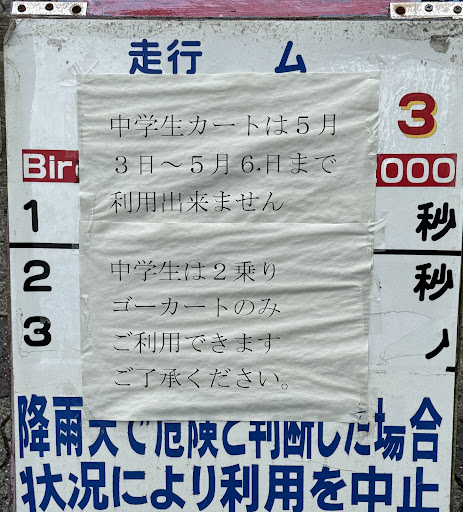 走行 ム
中学生カートは５月
３日～５月６.日まで
利用出来ません
3
000
1 秒
2 秒
3
中学生は２乗り
ゴーカートのみ
ご利用できます
ご了承ください。
降雨天で危険と判断した場合
状況により利用を中止